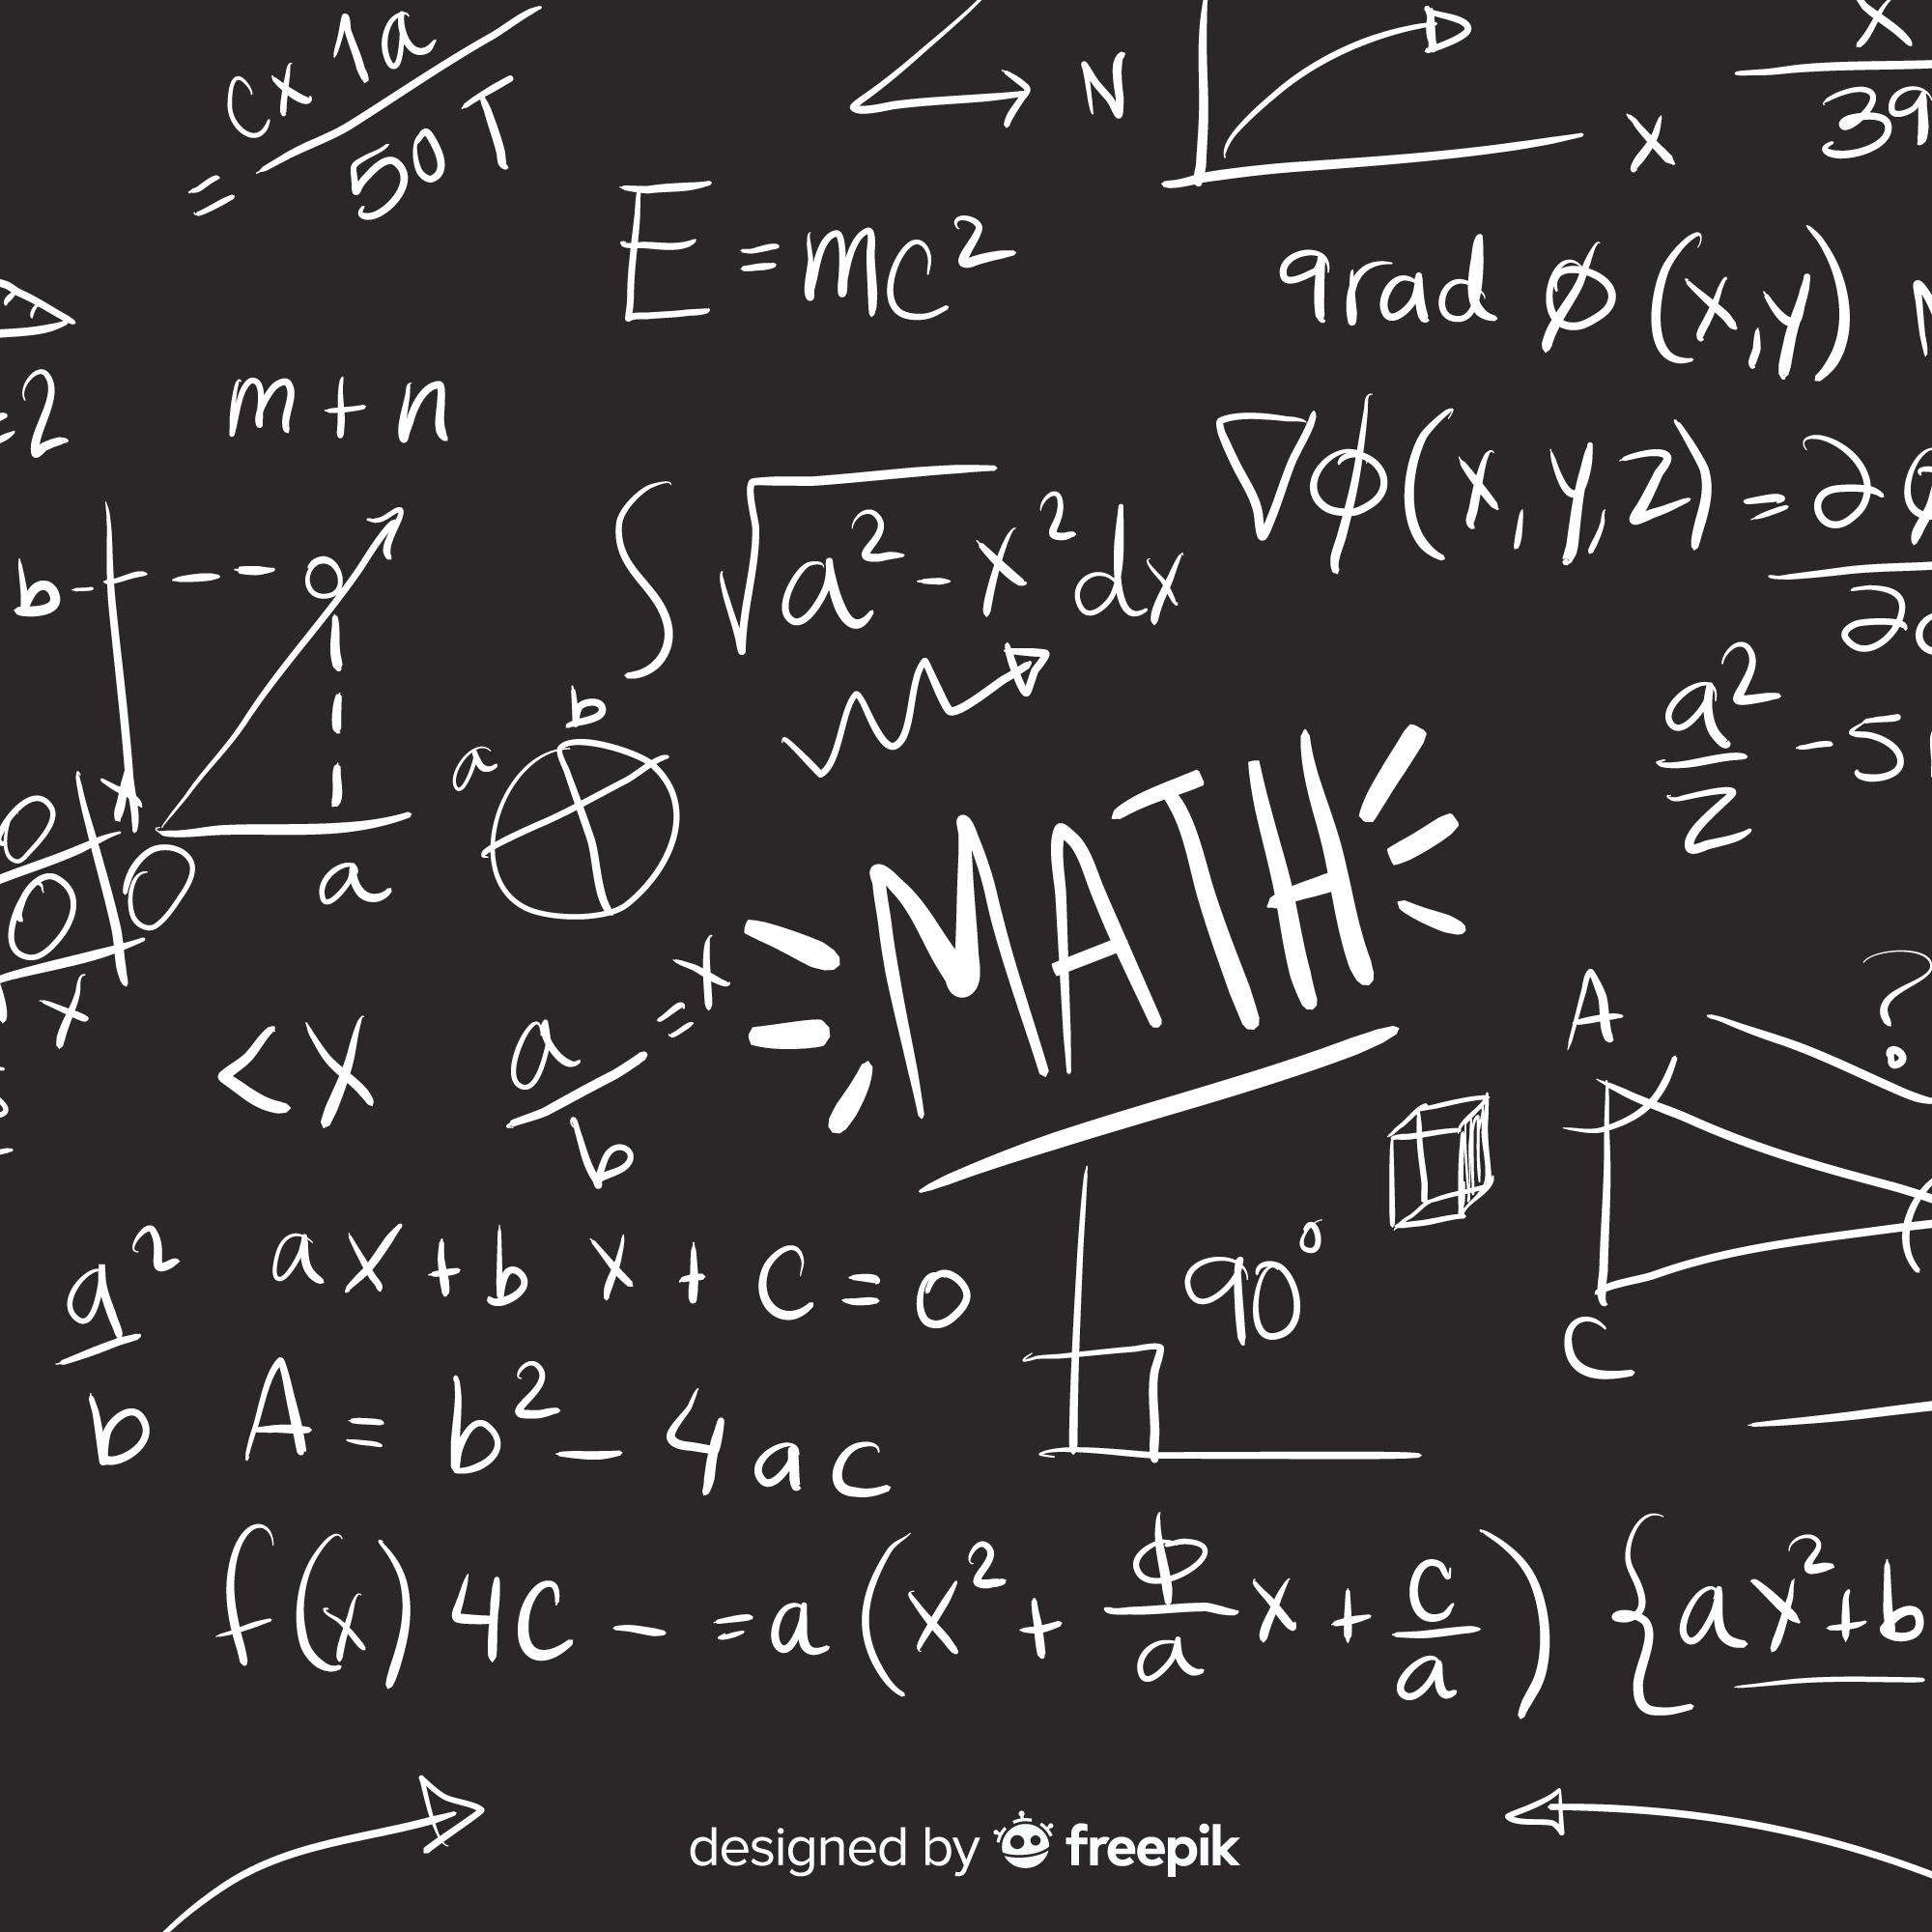 = cx 1a / 50 T
N
D
x
x / 39
E = mc²
grad φ (x,y)
=2
m + n
∇φ(x,y,z) = ∂
b
∫√a² - x² dx
a² / 2 - 5
b
a
a
MATH
x
<x
a / b = x
A
?
a² / b
ax + b x + c = 0
90°
C
A = b² - 4ac
f(x) 4c - = a (x² + φ/a x + c/a) {ax² + b
designed by freepik